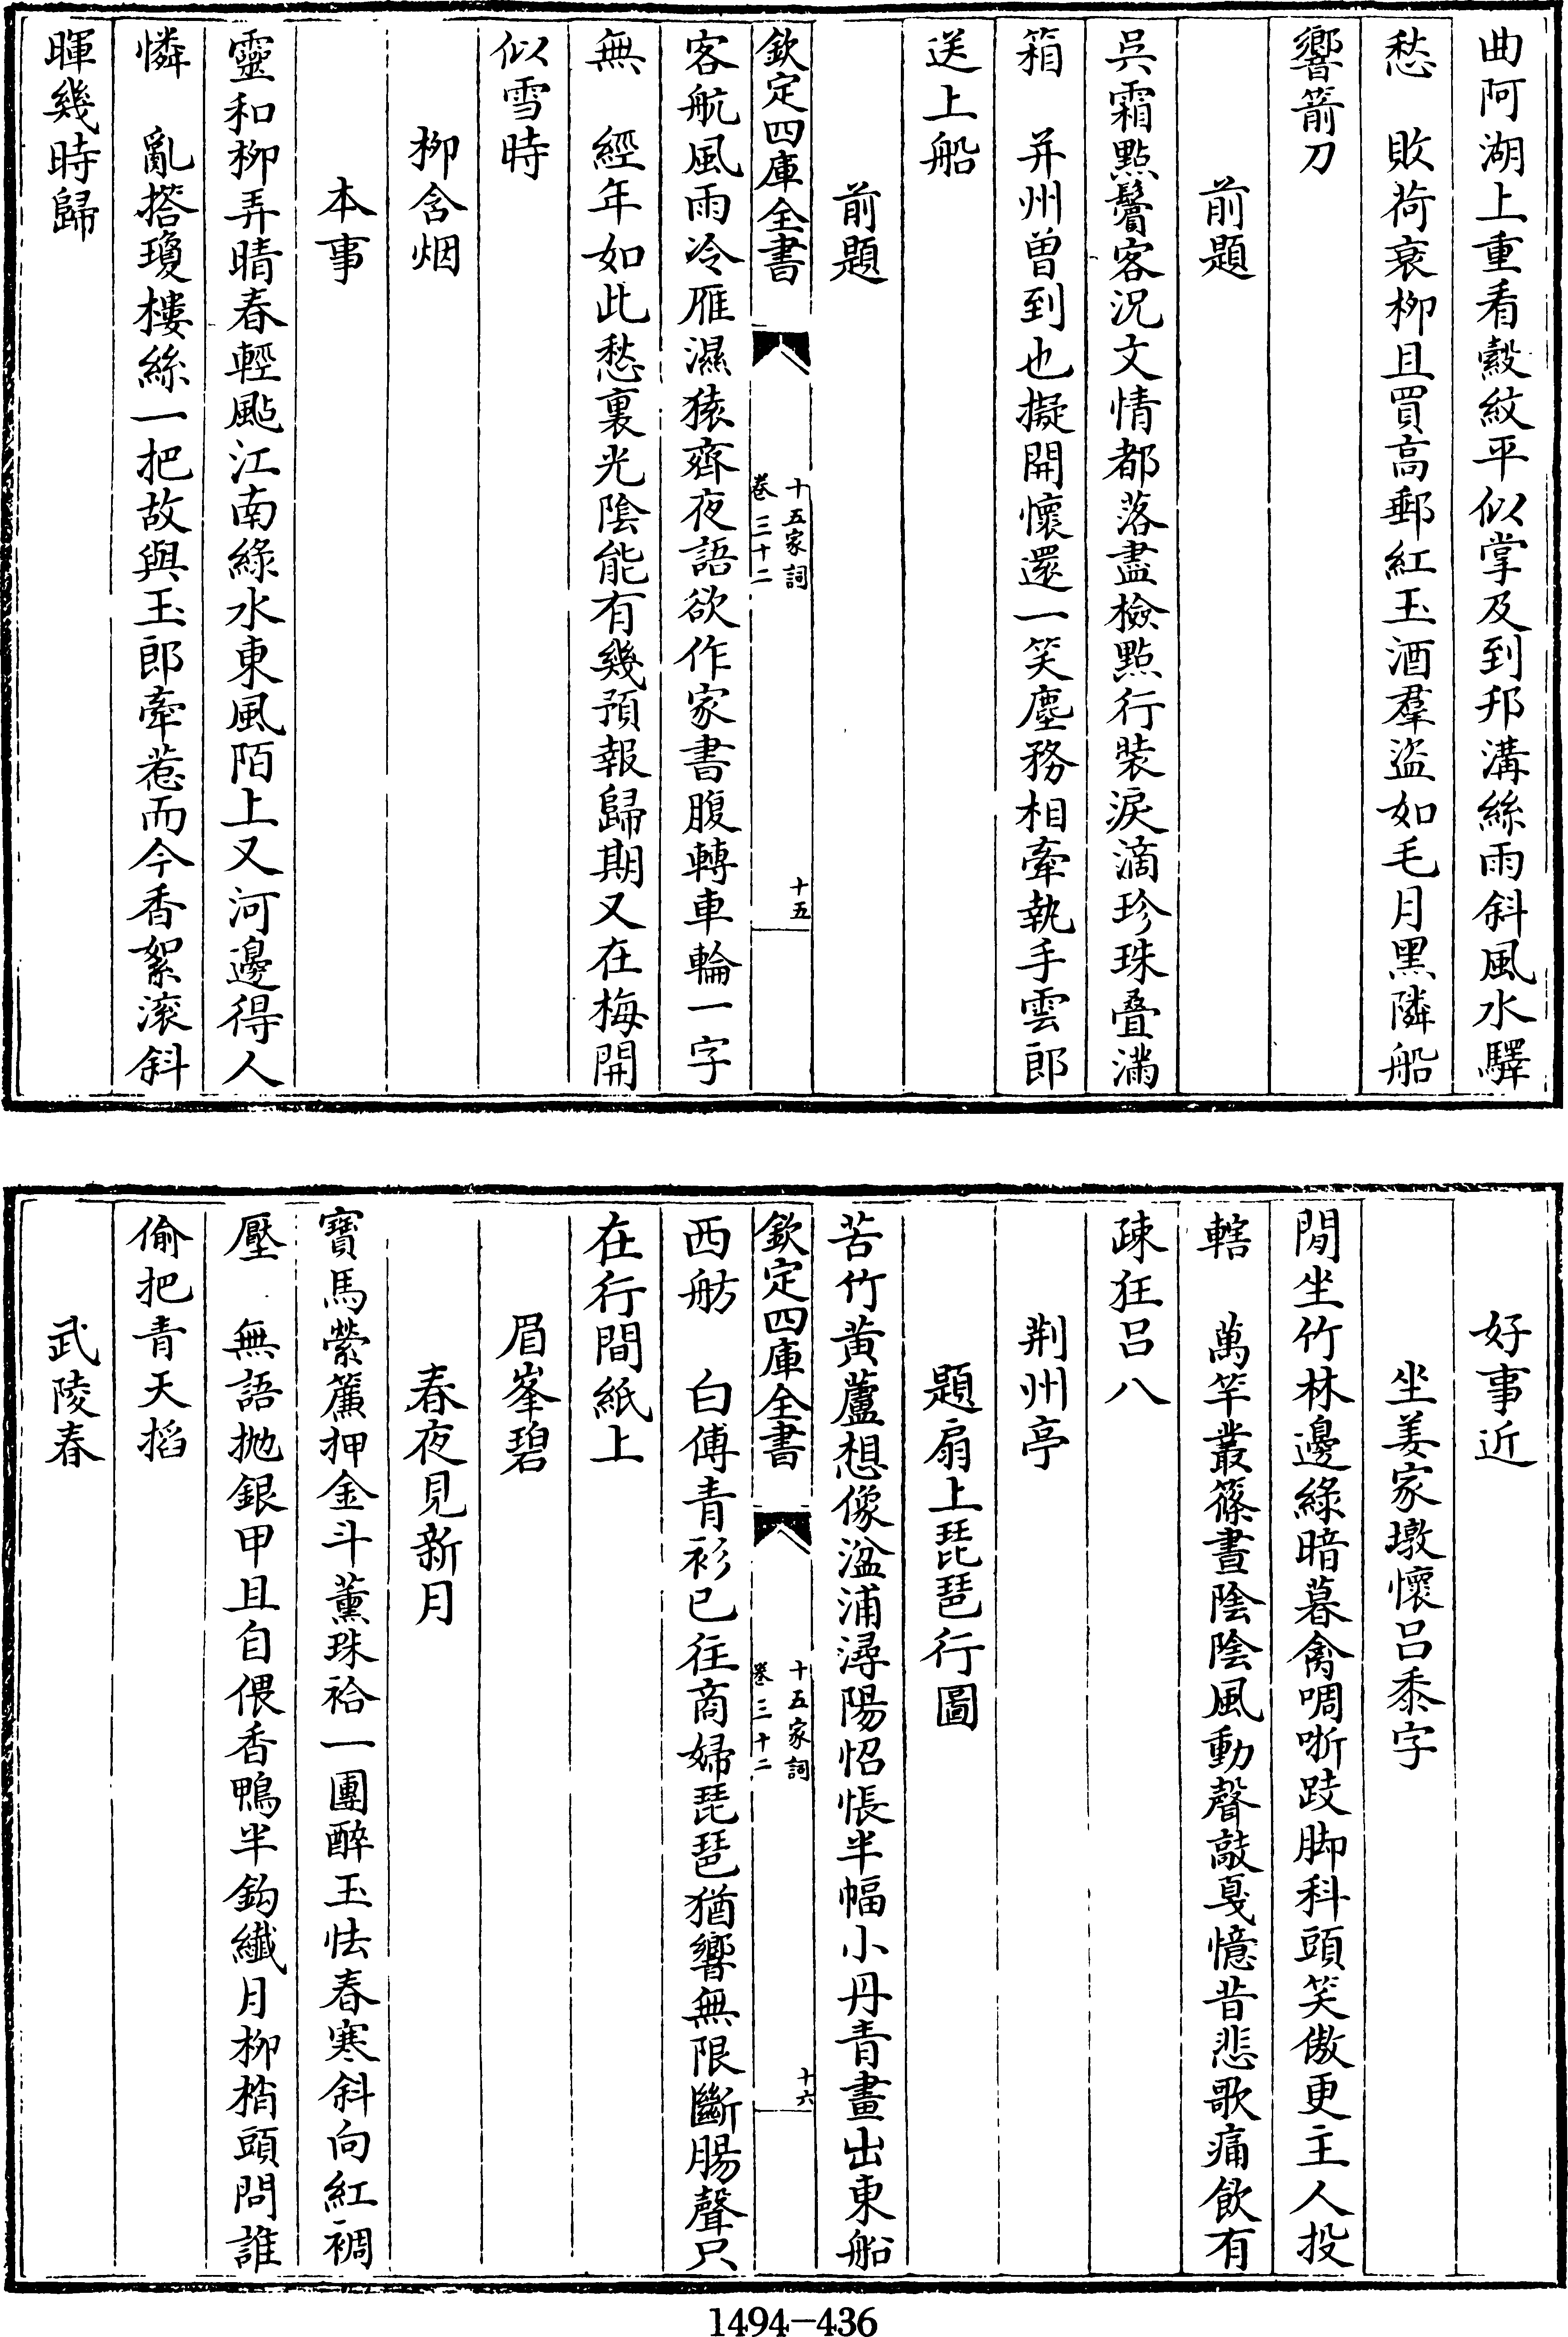 曲阿湖上重看縠紋平似掌及到邗溝絲雨斜風水驛
愁　敗荷衰柳且買高郵紅玉酒羣盜如毛月黒隣船
響箭刀
前題
吳霜點鬢客況文情都落盡檢點行裝淚滴珍珠叠滿
箱　并州曾到也擬開懷還一笑塵務相牽執手雲郎
送上船
前題
欽定四庫全書
十五家詞
卷三十二
十五
客航風雨冷雁濕猿齊夜語欲作家書腹轉車輪一字
無　經年如此愁裏光陰能有幾預報歸期又在梅開
似雪時
柳含烟
本事
靈和柳弄晴春輕颭江南綠水東風陌上又河邊得人
憐　亂搭瓊樓絲一把故與玉郎牽惹而今香絮滚斜
暉幾時歸
好事近
坐姜家墩懷吕黍字
閒坐竹林邊綠暗暮禽啁哳跂脚科頭笑傲更主人投
轄　萬竿叢篠晝陰陰風動聲敲戛憶昔悲歌痛飲有
疎狂吕八
荆州亭
題扇上琵琶行圖
苦竹黄蘆想像湓浦潯陽怊悵半幅小丹青畫出東船
欽定四庫全書
十五家詞
卷三十二
十六
西舫　白傅青衫已往商婦琵琶猶響無限斷腸聲只
在行間紙上
眉峯碧
春夜見新月
寶馬縈簾押金斗薰珠袷一團醉玉怯春寒斜向紅裯
壓　無語抛銀甲且自偎香鴨半鈎纖月柳梢頭問誰
偷把青天搯
武陵春
1494-436